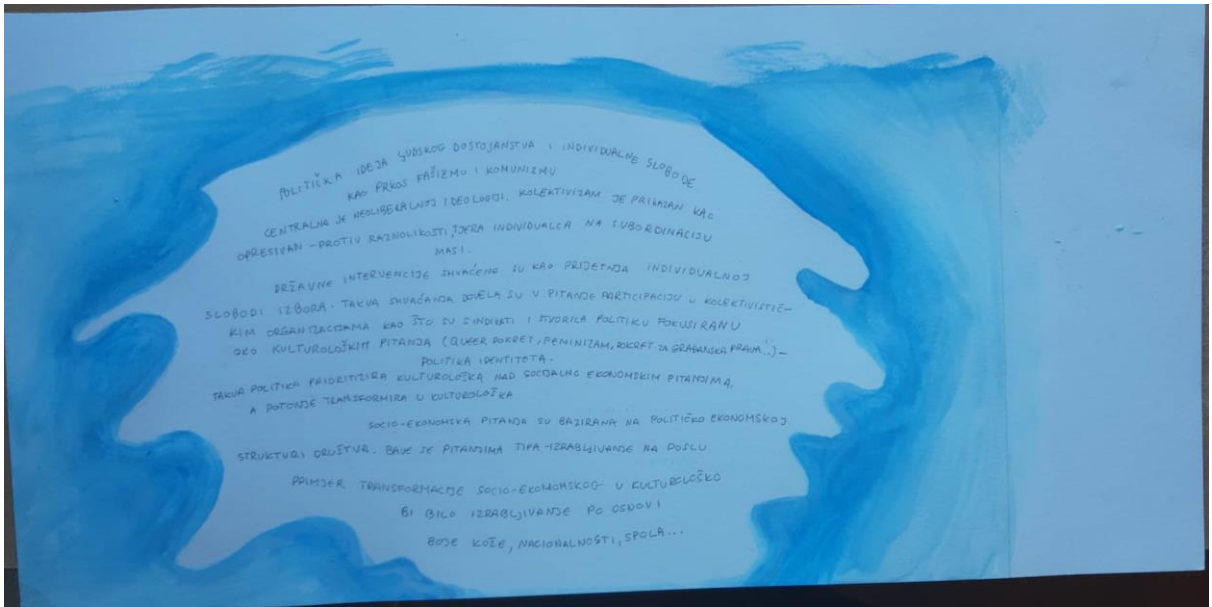 POLITIČKA IDEJA LJUDSKOG DOSTOJANSTVA I INDIVIDUALNE SLOBODE
KAO PRKOS FAŠIZMU I KOMUNIZMU
CENTRALNA JE NEOLIBERALNOJ IDEOLOGIJI. KOLEKTIVIZAM JE PRIKAZAN KAO
OPRESIVAN - PROTIV RAZNOLIKOSTI, TJERA INDIVIDUALCA NA SUBORDINACIJU
MASI.
DRŽAVNE INTERVENCIJE SHVAĆENE SU KAO PRIJETNJA INDIVIDUALNOJ
SLOBODI IZBORA. TAKVA SHVAĆANJA DOVELA SU U PITANJE PARTICIPACIJU U KOLEKTIVISTIČ-
KIM ORGANIZACIJAMA KAO ŠTO SU SINDIKATI I STVORILA POLITIKU FOKUSIRANU
OKO KULTUROLOŠKIH PITANJA (QUEER POKRET, FEMINIZAM, POKRET ZA GRAĐANSKA PRAVA...) -
POLITIKA IDENTITETA.
TAKVA POLITIKA PRIORITIZIRA KULTUROLOŠKA NAD SOCIJALNO EKONOMSKIM PITANJIMA,
A POTONJE TRANSFORMIRA U KULTUROLOŠKA
SOCIO-EKONOMSKA PITANJA SU BAZIRANA NA POLITIČKO EKONOMSKOJ
STRUKTURI DRUŠTVA. BAVE SE PITANJIMA TIPA - IZRABLJIVANJE NA POSLU
PRIMJER TRANSFORMACIJE SOCIO-EKONOMSKOG U KULTUROLOŠKO
BI BILO IZRABLJIVANJE PO OSNOVI
BOJE KOŽE, NACIONALNOSTI, SPOLA...